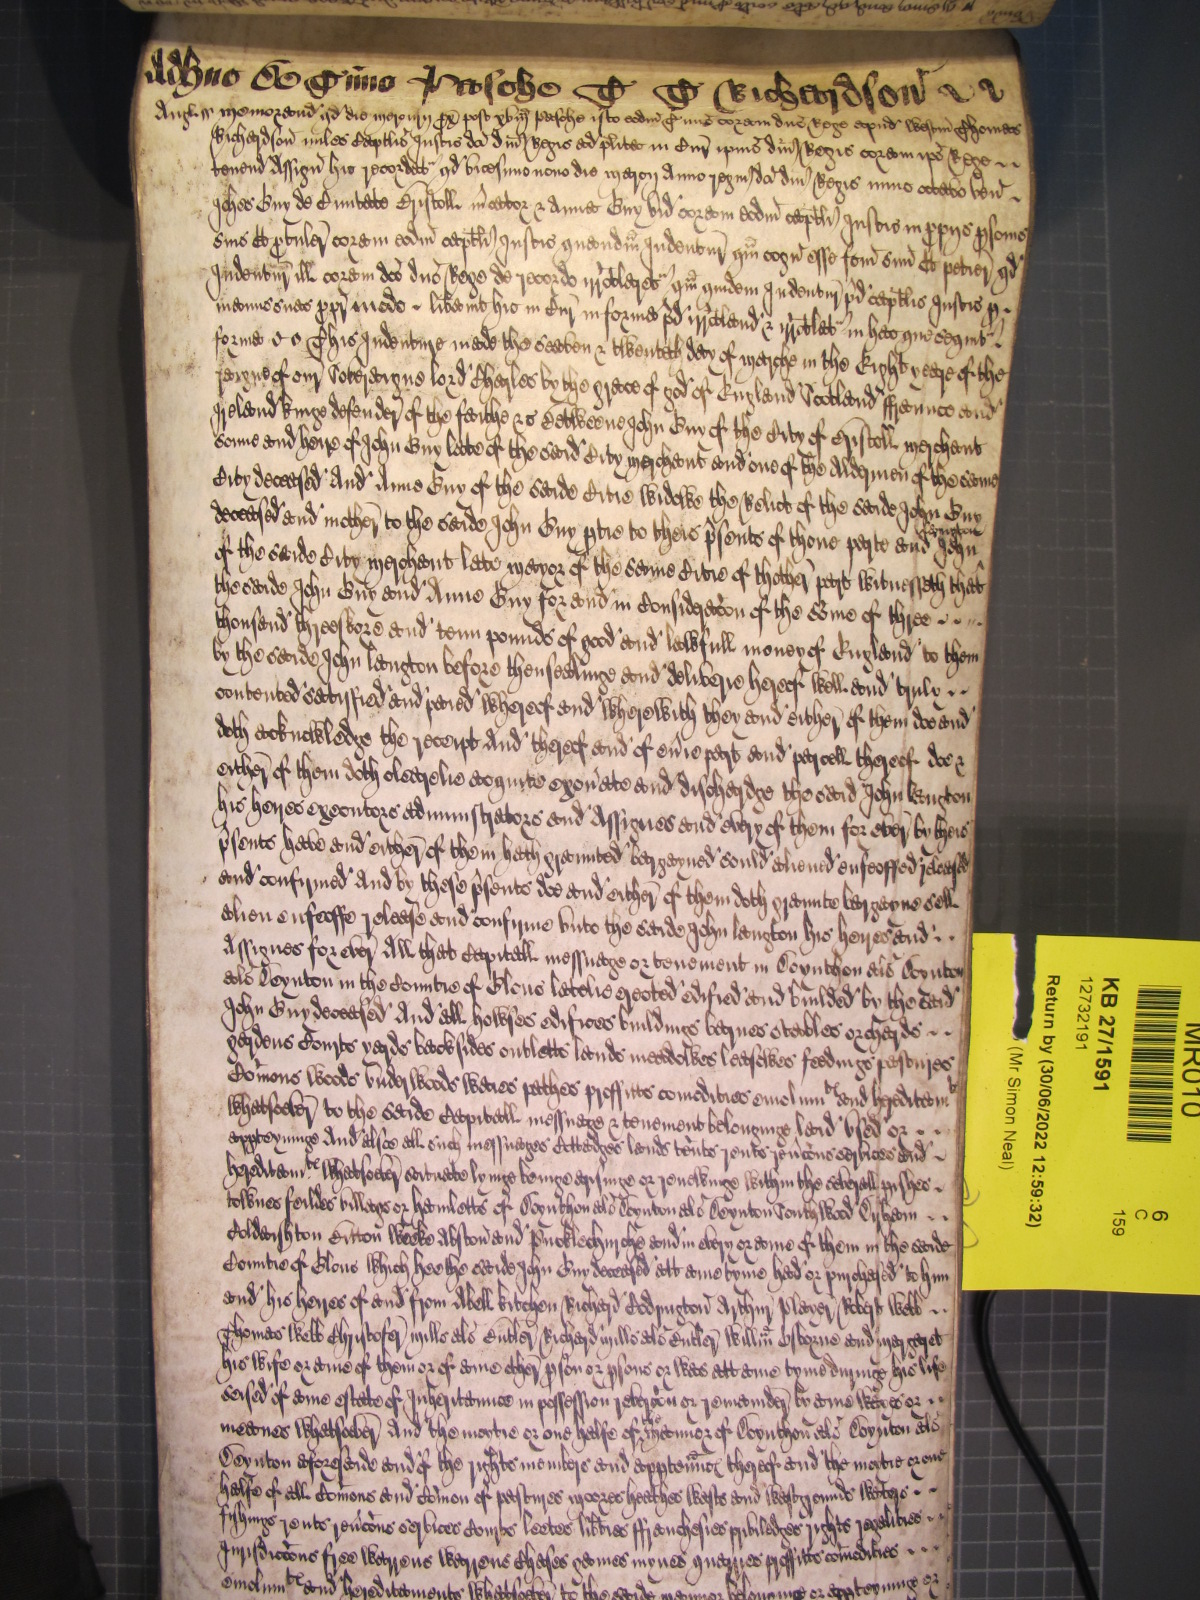 Adhuc de Termino Pasche Richardson
Angl ss Memorand qd die post Pasche isto eodm coram dno Rege apud Westm Thomas
Richardson miles Capitlis Justic dci dni Regis ad plita in Cur ipius dni Regis coram ipo Rege
tenend Assign hic recordat qd vicesimo nono die Anno regni dci dni Regis nunc octavo ven
Johes Guy de Civitate Bristoll mcator & Anna Guy vid coram eodm capitli Justic in propriis psonis
suis et coram eodm capitli Justic quandam Indentur qm esse fcm suu et petier qd
Indentur ill coram dco dno Rege de recordo qm quidem Indentur pd capitlis Justic p
manus suas ppr modo libavit hic in Cur in forma pd in hac que sequit
forma This Indenture made the seaven & twenteth day of Marche in the Eight yeare of the
raigne of our Soveraigne lord Charles by the grace of god of England Scotland ffraunce and
Ireland kinge defender of the faithe &c Betweene John Guy of the City of Bristoll merchant
sonne and heire of John Guy late of the said City merchant and one of the Aldermen of the same
City deceased And Anne Guy of the saide Citie widowe the Relict of the saide John Guy
deceased and mother to the saide John Guy ptie to theis psents of thone parte and John
Langton
of the saide City merchant late mayor of the same Citie of thother part Witnesseth that
the saide John Guy and Anne Guy for and in Consideracon of the some of three
thousand threescore and tenn pounds of good and lawfull money of England to them
by the saide John Langton before thensealinge and deliverie hereof well and truly
contented satisfied and paied whereof and wherewith they and either of them doe and
doth acknowledge the receipt And thereof and of evie part and parcell thereof doe &
either of them doth clearelie acquite exonate and dischardge the said John Langton
his heires executors administrators and Assignes and every of them for ever by theis
psents have and either of them hath graunted bargayned sould aliened enfeoffed released
and confirmed And by these psents doe and either of them doth graunte bargayne sell
alien enfeoffe release and confirme unto the saide John Langton his heires and
Assignes for ever All that Capitall messuage or tenement in Doynthon als Doynton
als Deynton in the Countie of Glouc latelie erected edified and builded by the said
John Guy deceased And all howses edifices buildings barnes stables orchards
gardens Courts yards backsides outletts lands meadowes leasowes feedings pastures
Comons woods underwoods waies pathes proffitts comodities emolumts and hereditamts
whatsoever to the saide Capitall messuage & tenement belonginge laid used or
apptayninge And alsoe all such messuages Cottadges lands tents rents revcons services and
hereditamts whatsoever scituate lyinge beinge arisinge or renewinge within the severall pishes
townes feildes villags or hamletts of Doynthon als Doynton als Deynton Southwood
Coldashton Bitton Weeke Abston and Pucklechurche and in every or anie of them in the saide
Countie of Glouc which hee the saide John Guy deceased att anie tyme had or purchased to him
and his heires of and from Abell Kitchen Richard Codrington Arthur Player Robert Webb
Thomas Webb Christofer Mills als Butler Richard Mills als Butler Willm Osborne and Margaret
his wife or anie of them or of anie other pson or psons or was att anie tyme duringe his life
seised of anie estate of Inheritance in possession revercon or remainder by anie waies or
meanes whatsoever And the moitie or one halfe of the mannor of Doynthon als Doynton als
Deynton aforesaide and of the rights members and apptennc thereof and the moitie or one
halfe of all Comons and Comon of pastures moores heathes wasts and wastgrounds waters
fishings rents revcons services Courts leetes libties ffranchesies priviledges rights regalities
Jurisdiccons free warrens warrens Chases games mynes quarries proffitts comodities
emolumts and hereditaments whatsoever to the saide mannor belonginge or apptayninge or
MR010
6
C
159
KB 27/1591
12732191
Return by (30/06/2022 12:59:32)
(Mr Simon Neal)